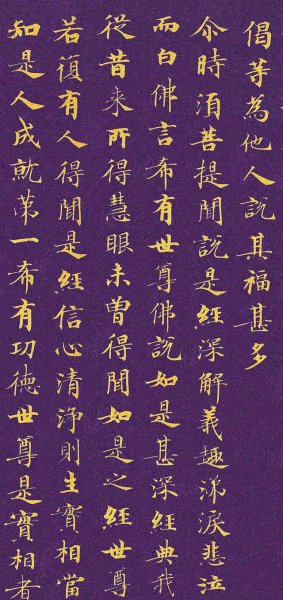 偈等為他人說其福甚多
尒時須菩提聞說是經深解義趣涕淚悲泣
而白佛言希有世尊佛說如是甚深經典我
從昔来所得慧眼未曾得聞如是之經世尊
若復有人得聞是經信心清淨則生實相當
知是人成就苐一希有功德世尊是實相者